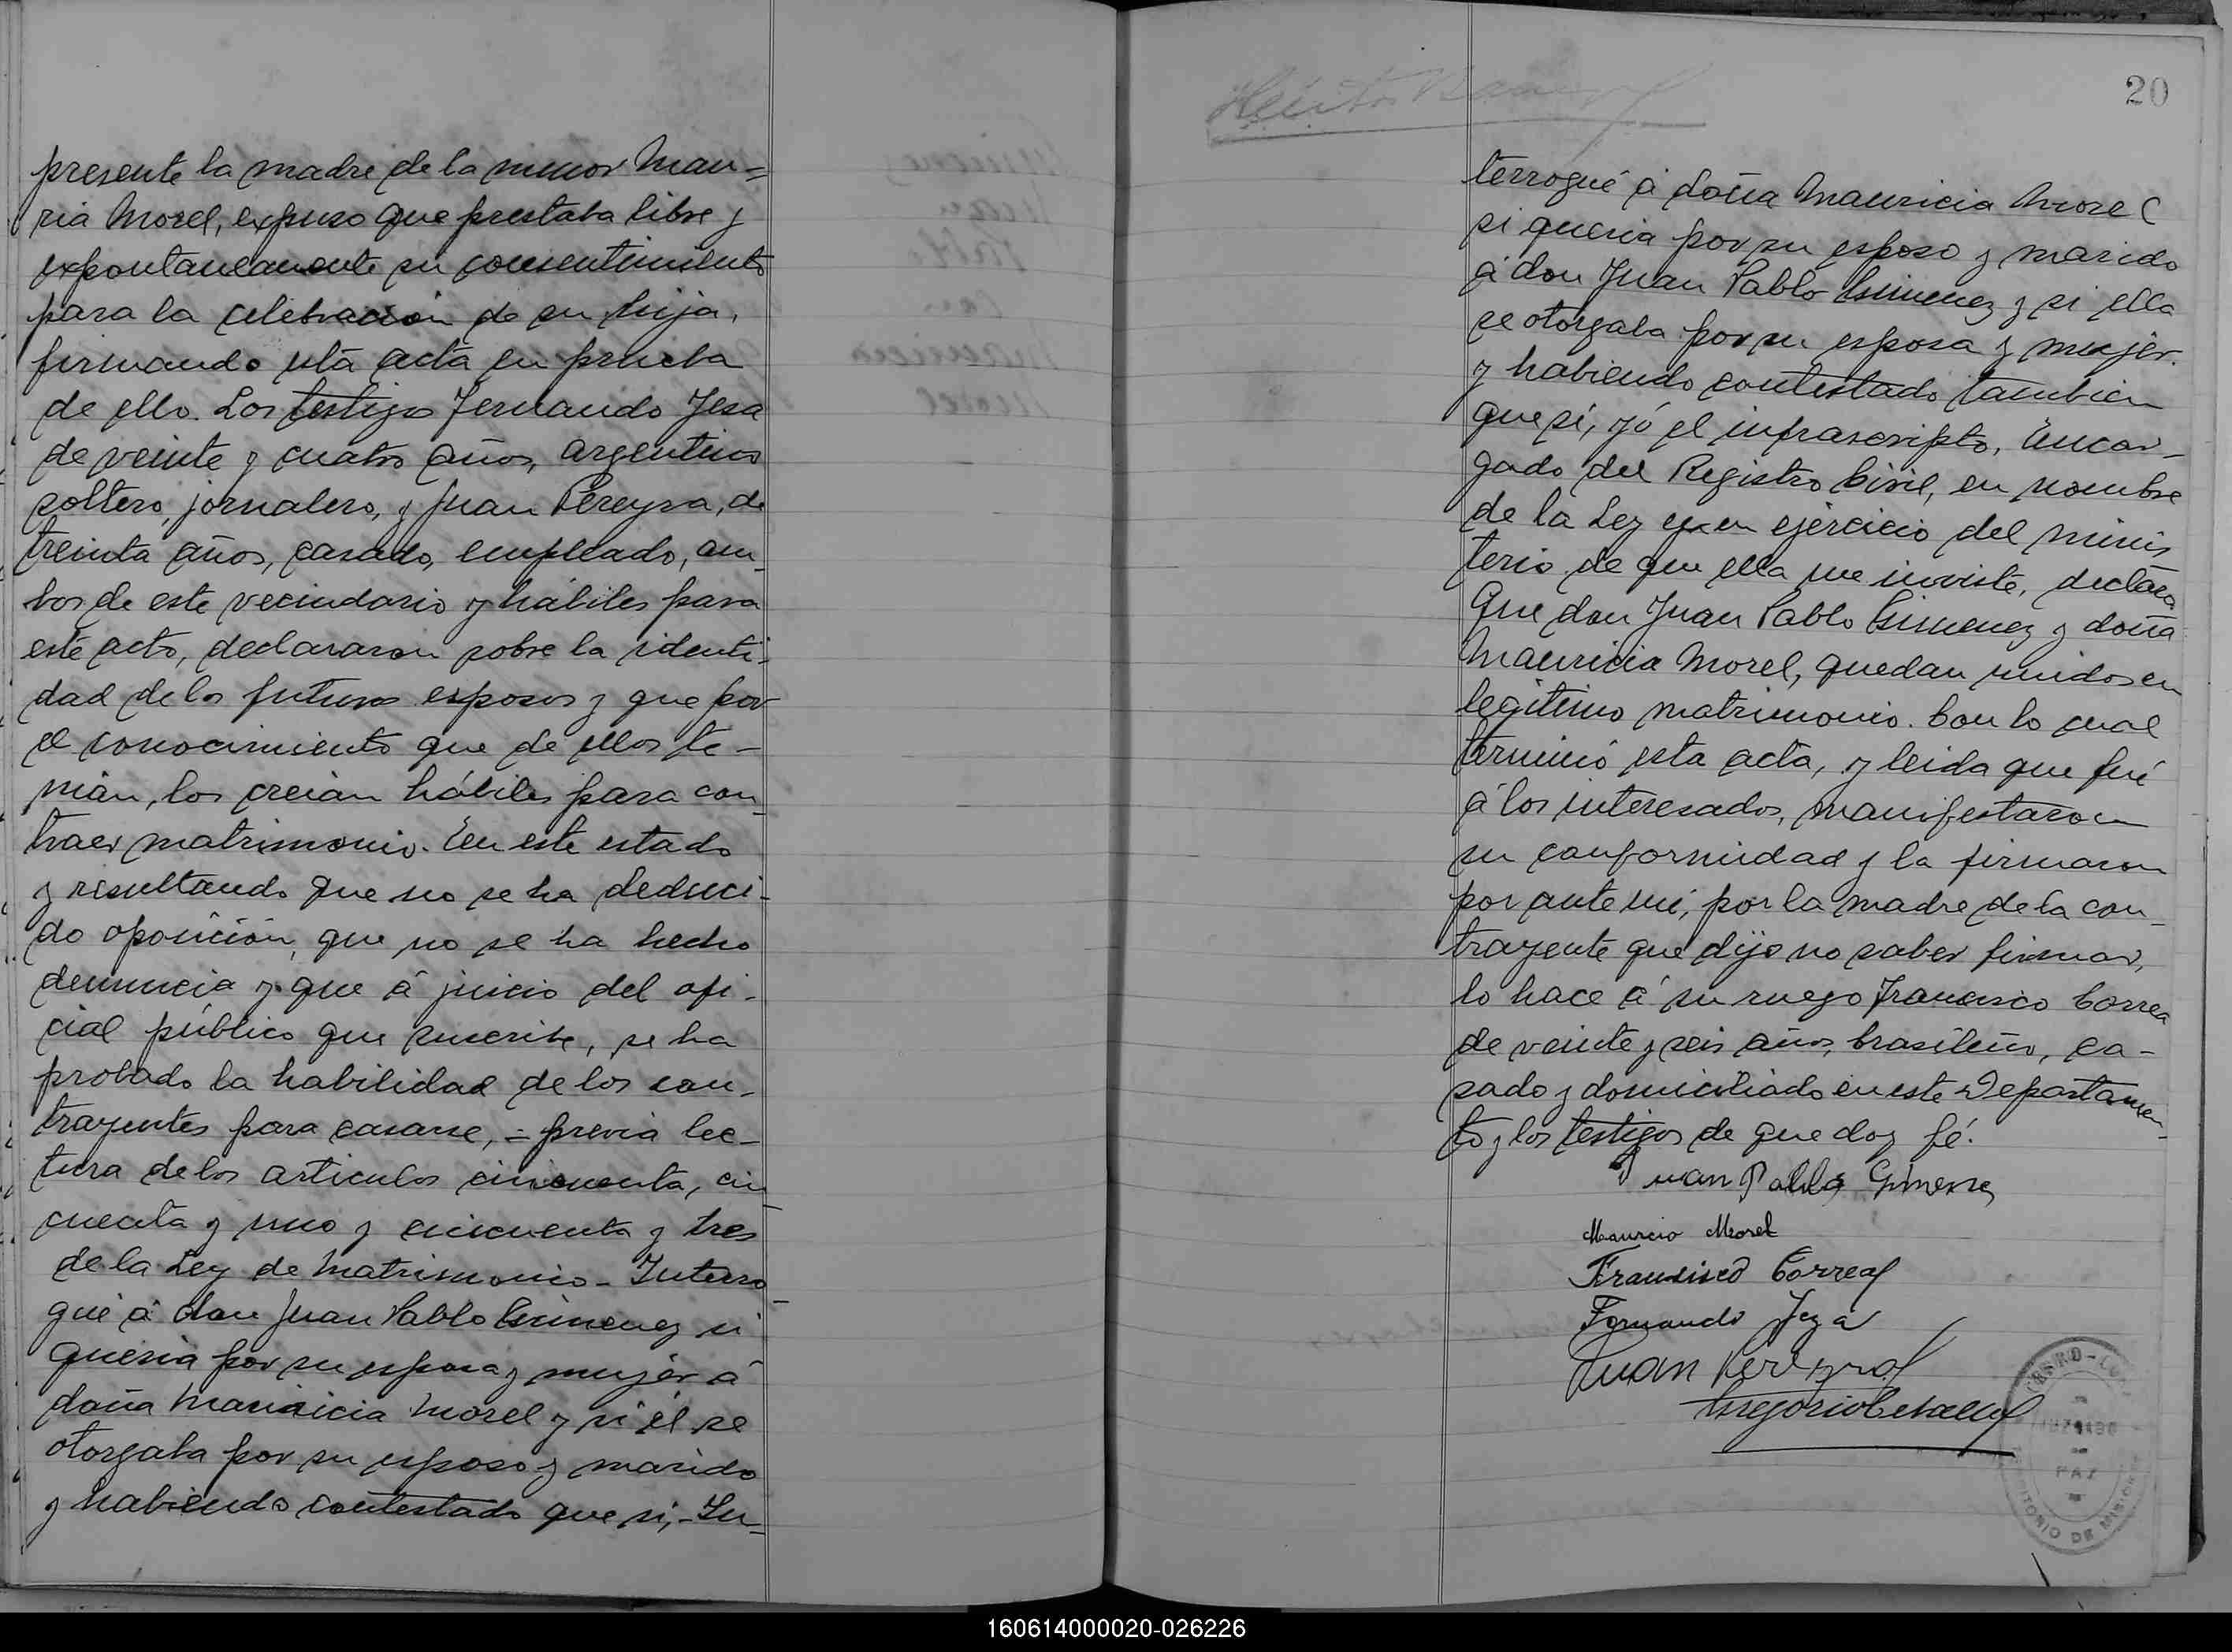 presente la madre de la menor Mau=
ria Morel, expuso que prestaba libre y
expontaneamente su consentimiento
para la celebración de su hija,
firmando esta acta en prueba
de ello. Los testigos Fernando Yesa
de veinte y cuatro años, argentino
soltero, jornalero, y Juan Pereyra, de
treinta años, casado, empleado, am_
bos de este vecindario y hábiles para
este acto, declararon sobre la identi-
dad de los futuros esposos y que por
el conocimiento que de ellos te-
nian, los creian hábiles para con_
traer matrimonio. En este estado
y resultando que no se ha deduci-
do oposición, que no se ha hecho
denuncia y que á juicio del ofi-
cial público que suscribe, se ha
probado la habilidad de los con-
trayentes para casarse, = previa lec-
tura de los articulos cincuenta, cin_
cuenta y uno y cincuenta y tres
de la Ley de Matrimonio - Interro_
gué á don Juan Pablo Gimenez si
queria por su esposa y mujer á
doña Mauricia Morel y si él se
otorgaba por su esposo y marido
y habiendo contestado que si, - In_
20
terrogué á doña Mauricia Morel
si queria por su esposo y marido
á don Juan Pablo Gimenez y si ella
se otorgaba por su esposa y mujer.
y habiendo contestado tambien
que si, yó el infrascripto, Encar_
gado del Registro Civil, en nombre
de la Ley y en ejercicio del minis
terio de que ella me inviste, declaro
Que don Juan Pablo Gimenez y doña
Mauricia Morel, quedan unidos en
legitimo matrimonio. Con lo cual
terminó esta acta, y leida que fué
á los interesados, manifestaron
su conformidad y la firmaron
por ante mi, por la madre de la con_
trayente que dijo no saber firmar,
lo hace á su ruego Francisco Correa
de veinte y seis años, brasileño, ca-
sado y domiciliado en este Departamen_
to y los testigos de que doy fé.
Juan Pablo Gimenez
Mauricio Morel
Francisco Correa
Fernando Yeza
Juan Pereyra
Gregorio
PAZ
160614000020-026226